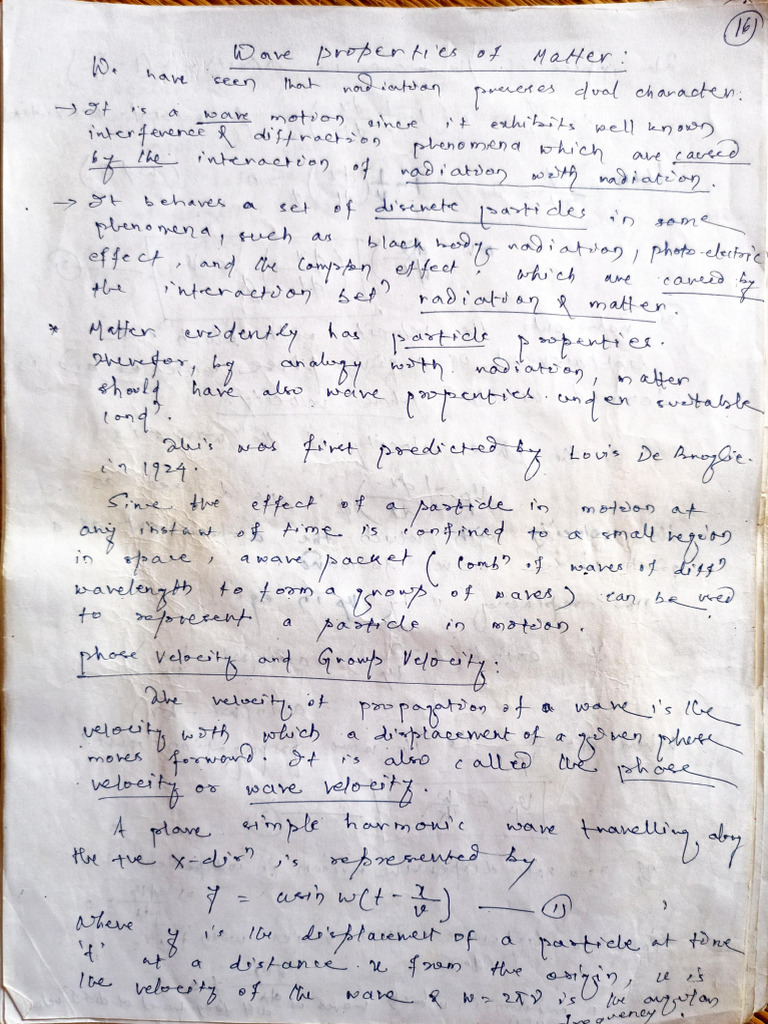 16
Wave properties of Matter:
We have seen that radiation posseses dual character:
→ It is a wave motion since it exhibits well known
interference & diffraction phenomena which are caused
by the interaction of radiation with radiation.
→ It behaves a set of discrete particles in some
phenomena, such as black body radiation, photo-electric
effect, and the compton effect, which are caused by
the interaction betⁿ radiation & matter.
* Matter evidently has particle properties.
Therefor, by analogy with radiation, matter
should have also wave properties under suitable
condⁿ.
This was first predicted by Louis De Broglie
in 1924.
Since the effect of a particle in motion at
any instant of time is confined to a small region
in space, a wave packet (combⁿ of waves of diffⁿ
wavelength to form a group of waves) can be used
to represent a particle in motion.
phase Velocity and Group Velocity:
The velocity of propagation of a wave is the
velocity with which a displacement of a given phase
moves forward. It is also called the phase
velocity or wave velocity.
A plane simple harmonic wave travelling along
the +ve x-dirⁿ is represented by
y = a sin w(t - x/v) —— (1)
Where y is the displacement of a particle at time
't' at a distance x from the origin, u is
the velocity of the wave & w = 2πν is the angular
frequency.